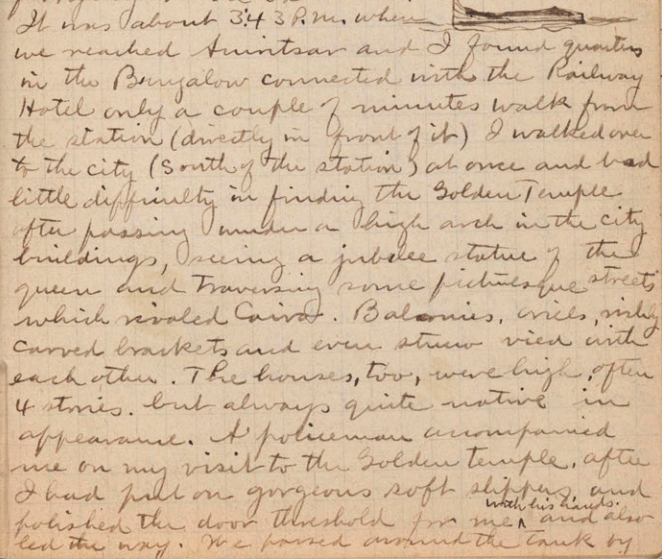 It was about 3.43 P.m. when
we reached Amritsar and I found quarters
in the Bungalow connected with the Railway
Hotel only a couple of minutes walk from
the station (directly in front of it) I walked over
to the city (South of the station) at once and had
little difficulty in finding the Golden Temple
after passing under a high arch in the city
buildings, seeing a jubilee statue of the
queen and traversing some picturesque streets
which rivaled Cairo. Balconies, oriels, richly
carved brackets and even vied with
each other. The houses, too, were high, often
4 stories. but always quite native in
appearance. A policeman accompanied
me on my visit to the Golden temple, after
I had put on gorgeous soft slippers, and
polished the door threshold for me with his hands. and also
led the way. We passed around the tank by